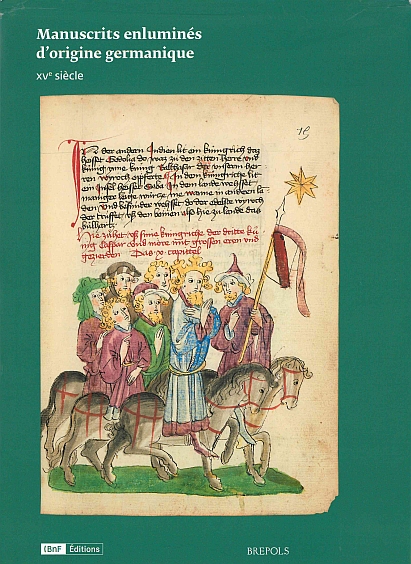 Manuscrits enluminés
d'origine germanique
XVe siècle
15
der andern Indien lit ein küngrich daz
heisset Godolia do waz zu den zitten herre vnd
küng Balthasar der vnserm her-
ren wyroch opfferte In dem künigriche lit
ein Insel heisset Saba In dem lande wechsset
maniger leige würtze me wanne in andern la-
den vnd besunder wechsset do der edelste wyroch
der trüffet usz den bömen also hie zu lande das
bulhartz
Hie zühet usz sime küngriche der dritte kü-
nig Caspar vnd mit grossen eren vnd
gezierden Das x capittel
BnF Éditions
BREPOLS